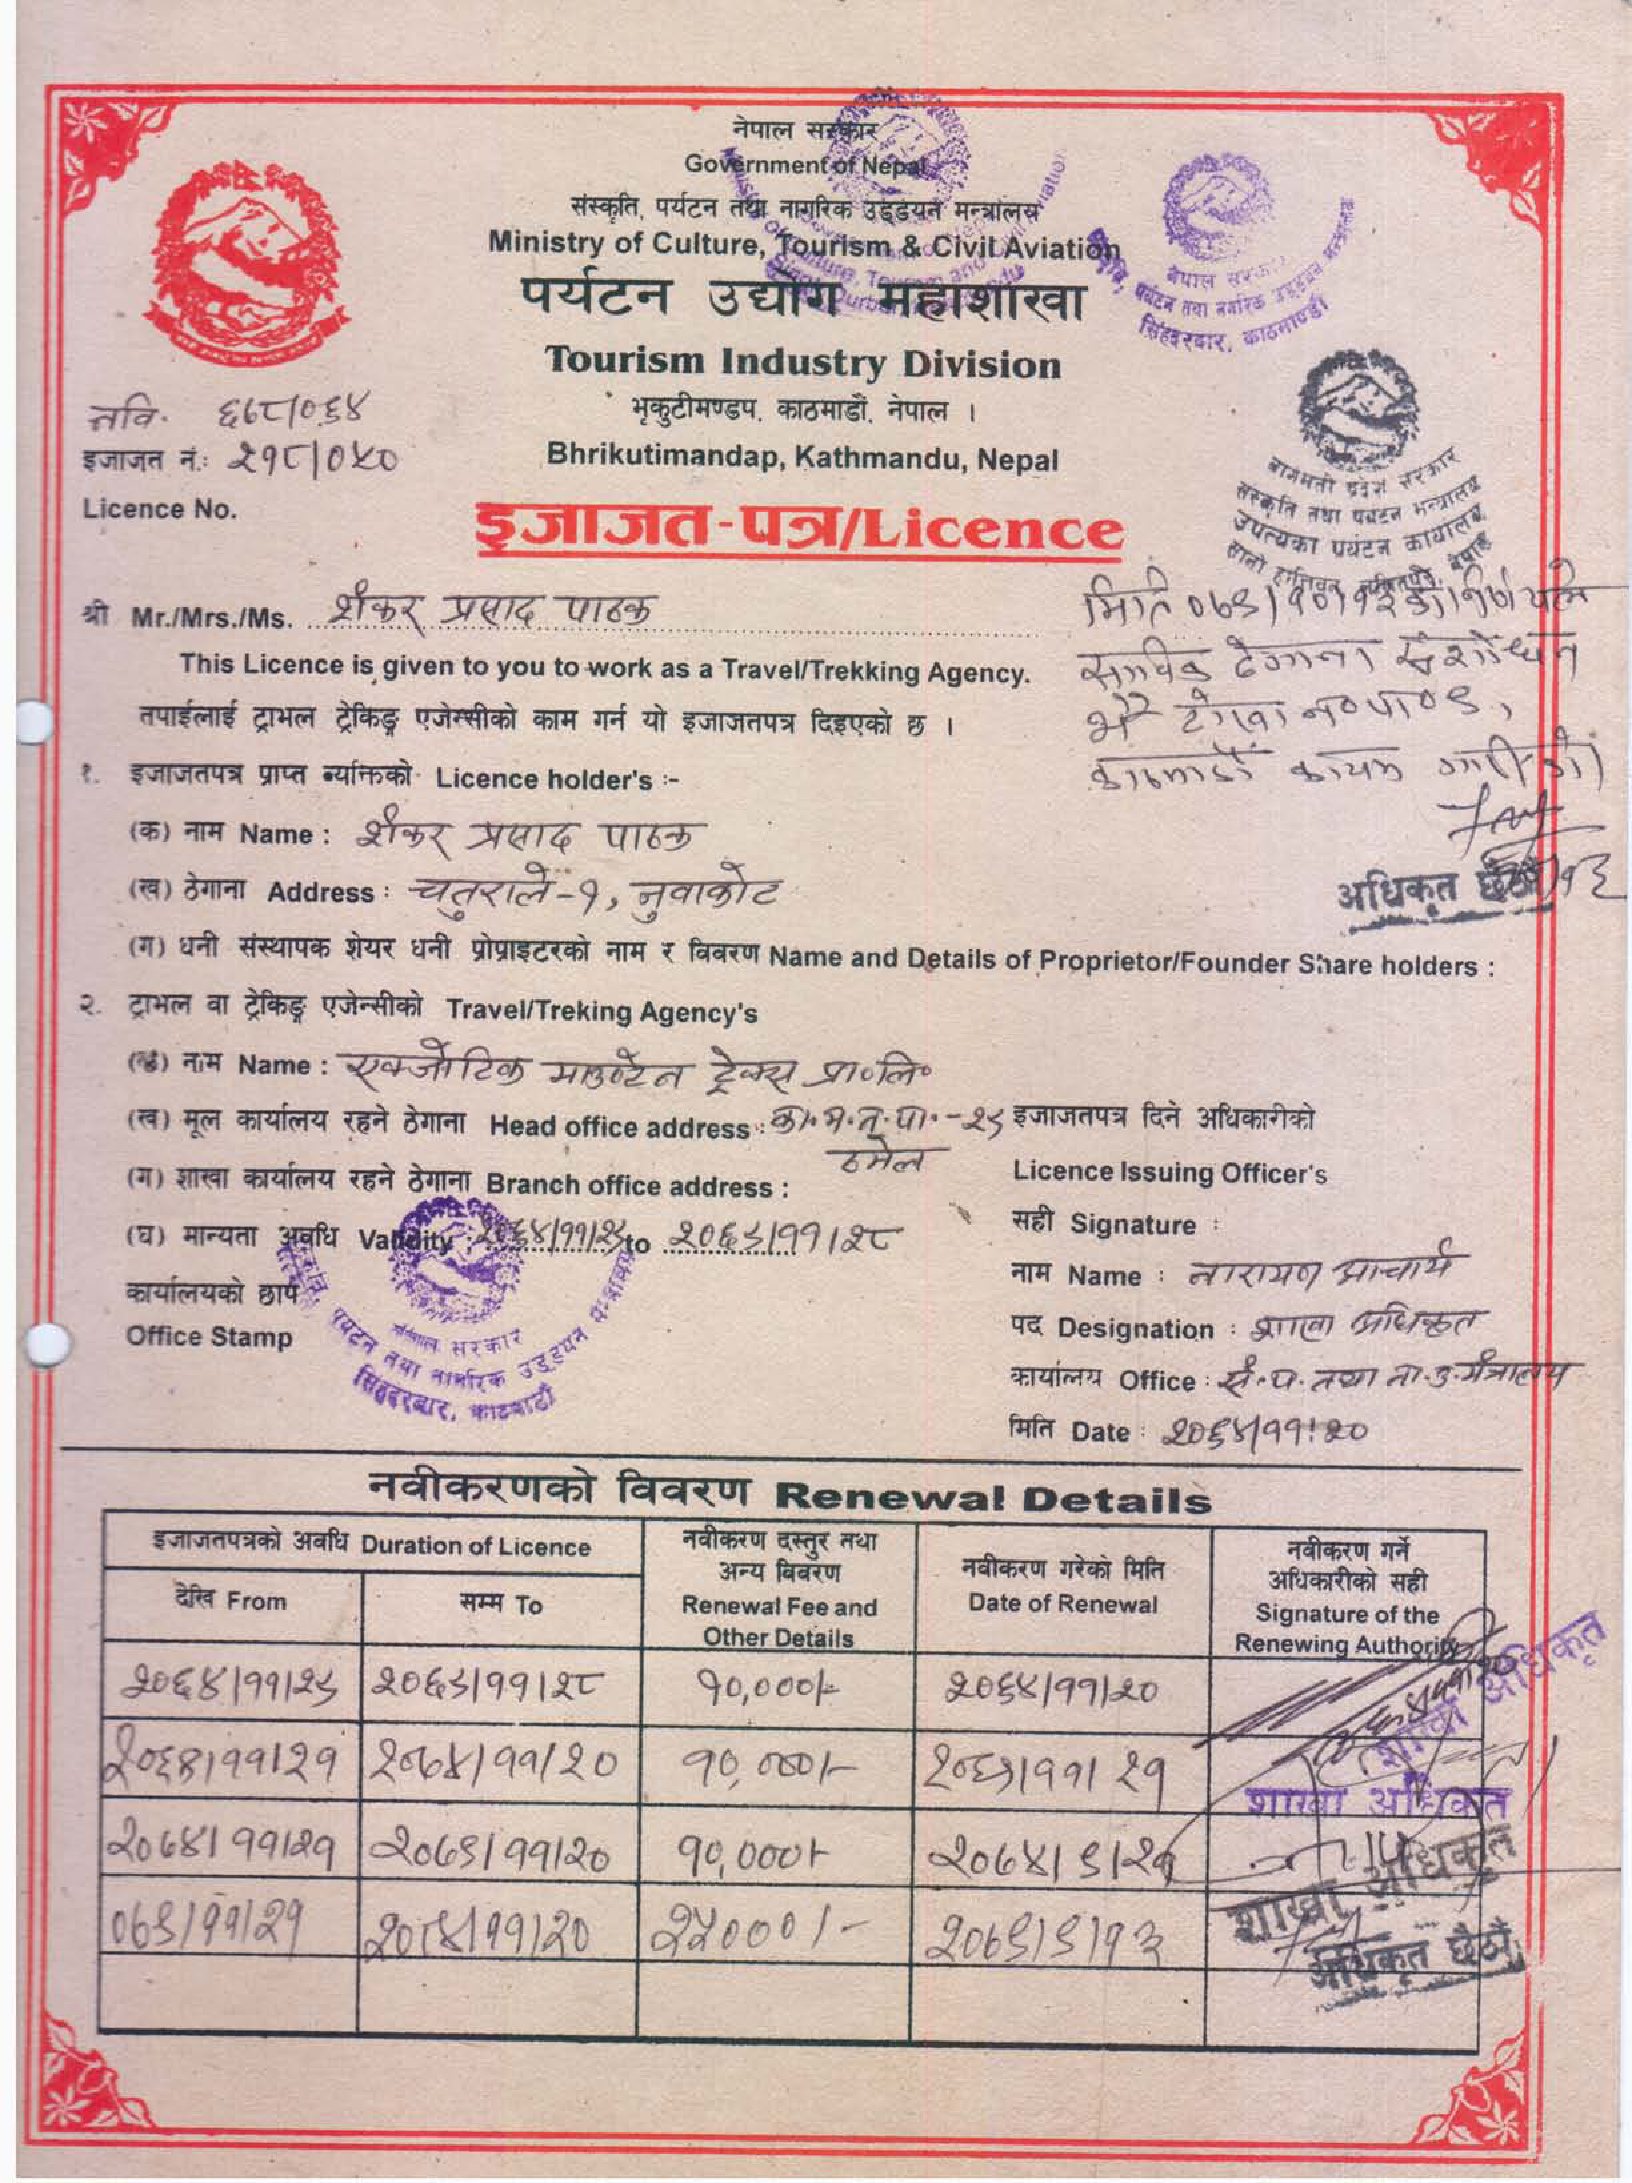 नेपाल सरकार
Government of Nepal
संस्कृति, पर्यटन तथा नागरिक उड्डयन मन्त्रालय
Ministry of Culture, Tourism & Civil Aviation
पर्यटन उद्योग महाशाखा
Tourism Industry Division
भृकुटीमण्डप, काठमाडौं, नेपाल ।
Bhrikutimandap, Kathmandu, Nepal
नेपाल सरकार
संस्कृति, पर्यटन तथा नागरिक उड्डयन मन्त्रालय
सिंहदरवार, काठमाण्डौ
नवि. ६६८/०६४
इजाजत नं.: २१८/०५०
Licence No.
बागमती प्रदेश सरकार
संस्कृति तथा पर्यटन मन्त्रालय
उपत्यका पर्यटन कार्यालय
इजाजत-पत्र/Licence
श्री Mr./Mrs./Ms. शंकर प्रसाद पाठक
This Licence is given to you to work as a Travel/Trekking Agency.
तपाईलाई ट्राभल ट्रेकिङ्ग एजेन्सीको काम गर्न यो इजाजतपत्र दिइएको छ ।
साविक ठेगाना संशोधन
भै टोखा न०पा०९,
काठमाडौं कायम गरिएको।
अधिकृत छैठौं
१. इजाजतपत्र प्राप्त व्यक्तिको Licence holder's :-
(क) नाम Name : शंकर प्रसाद पाठक
(ख) ठेगाना Address : चतुराले-१, नुवाकोट
(ग) धनी संस्थापक शेयर धनी प्रोप्राइटरको नाम र विवरण Name and Details of Proprietor/Founder Share holders :
२. ट्राभल वा ट्रेकिङ्ग एजेन्सीको Travel/Treking Agency's
(क) नाम Name : एक्जोटिक माउण्टेन ट्रेक्स प्रा०लि०
(ख) मूल कार्यालय रहने ठेगाना Head office address : का.म.न.पा.-२९
ठमेल
(ग) शाखा कार्यालय रहने ठेगाना Branch office address :
(घ) मान्यता अवधि Validity २०६४/११/२९ to २०६९/११/२८
कार्यालयको छाप
Office Stamp
नेपाल सरकार
संस्कृति, पर्यटन तथा नागरिक उड्डयन मन्त्रालय
सिंहदरवार, काठमाडौं
इजाजतपत्र दिने अधिकारीको
Licence Issuing Officer's
सही Signature :
नाम Name : नारायण आचार्य
पद Designation : शाखा अधिकृत
कार्यालय Office : सं.प. तथा ना.उ.मंत्रालय
मिति Date : २०६४/११/२०
नवीकरणको विवरण Renewal Details
इजाजतपत्रको अवधि Duration of Licence
देखि From
सम्म To
नवीकरण दस्तुर तथा
अन्य विवरण
Renewal Fee and
Other Details
नवीकरण गरेको मिति
Date of Renewal
नवीकरण गर्ने
अधिकारीको सही
Signature of the
Renewing Authority
२०६४/११/२९ २०६९/११/२८ १०,०००/- २०६४/११/२०
शाखा अधिकृत
२०६९/११/२१ २०७४/११/२० १०,०००/- २०६९/११/२१
शाखा अधिकृत
२०७४/११/२१ २०७९/११/२० १०,०००/- २०७४/९/२१
शाखा अधिकृत
०७९/११/२१ २०८४/११/२० २५०००/- २०७९/९/१३
अधिकृत छैठौं